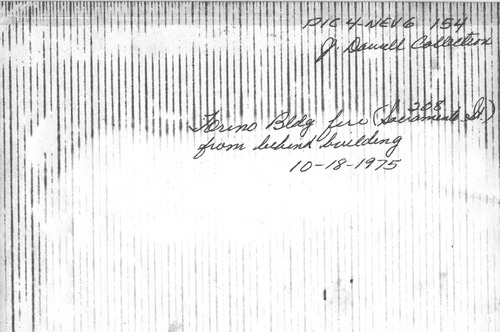 PIC 4-NEV 6 154
J. Dowell Collection
208
Torino Bldg fire (Sacramento St.)
from behind building
10-18-1975